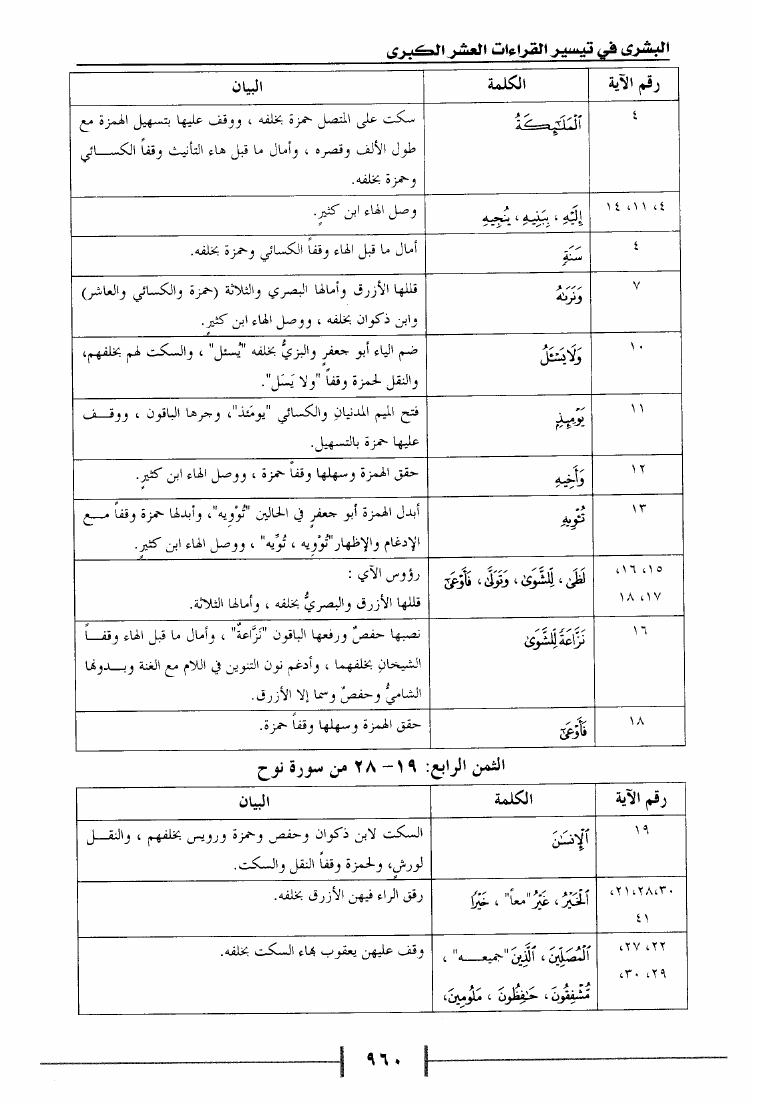 البشرى في تيسير القراءات العشر الكبرى
رقم الآية الكلمة البيان
٤ ٱلْمَلَٰٓئِكَةُ سكت على المتصل حمزة بخلفه ، ووقف عليها بتسهيل الهمزة مع
طول الألف وقصره ، وأمال ما قبل هاء التأنيث وقفاً الكسائي
وحمزة بخلفه.
٤، ١١، ١٤ إِلَيْهِ ، بِبَنِيهِ ، يُنجِيهِ وصل الهاء ابن كثيرٍ.
٤ سَنَةٍ أمال ما قبل الهاء وقفاً الكسائي وحمزة بخلفه.
٧ وَنَرَىٰهُ قللها الأزرق وأمالها البصري والثلاثة (حمزة والكسائي والعاشر)
وابن ذكوان بخلفه ، ووصل الهاء ابن كثيرٍ.
١٠ وَلَا يَسْـَٔلُ ضم الياء أبو جعفرٍ والبزيُّ بخلفه "يُسئل" ، والسكت لهم بخلفهم،
والنقل لحمزة وقفاً "ولا يَسَل".
١١ يَوْمِئِذٍ فتح الميم المدنيان والكسائي "يومَئذ"، وجرها الباقون ، ووقف
عليها حمزة بالتسهيل.
١٢ وَأَخِيهِ حقق الهمزة وسهلها وقفاً حمزة ، ووصل الهاء ابن كثيرٍ.
١٣ تُـْٔوِيهِ أبدل الهمزة أبو جعفرٍ في الحالين "تُوْوِيه"، وأبدلها حمزة وقفاً مع
الإدغام والإظهار"تُوْوِيه ، تُوِّيه" ، ووصل الهاء ابن كثيرٍ.
١٥، ١٦، لَظَىٰ ، لِّلشَّوَىٰ ، وَتَوَلَّىٰ ، فَأَوْعَىٰٓ رؤوس الآي :
١٧، ١٨ قللها الأزرق والبصريُّ بخلفه ، وأمالها الثلاثة.
١٦ نَزَّاعَةً لِّلشَّوَىٰ نصبها حفصٌ ورفعها الباقون "نَزَّاعةٌ" ، وأمال ما قبل الهاء وقفاً
الشيخان بخلفهما ، وأدغم نون التنوين في اللام مع الغنة وبدونها
الشاميُّ وحفصٌ وسما إلا الأزرق.
١٨ فَأَوْعَىٰٓ حقق الهمزة وسهلها وقفاً حمزة.
الثمن الرابع: ١٩- ٢٨ من سورة نوح
رقم الآية الكلمة البيان
١٩ ٱلْإِنسَٰنَ السكت لابن ذكوان وحفص وحمزة ورويس بخلفهم ، والنقل
لورشٍ، ولحمزة وقفاً النقل والسكت.
٢١،٢٨،٣٠، ٱلْخَيْرُ ، غَيْرُ "معاً" ، خَيْرًا رقق الراء فيهن الأزرق بخلفه.
٤١
٢٢، ٢٧، ٱلْمُصَلِّينَ ، ٱلَّذِينَ "جميعه" ، وقف عليهن يعقوب بهاء السكت بخلفه.
٢٩، ٣٠، مُّشْفِقُونَ ، حَٰفِظُونَ ، مَلُومِينَ،
٩٦٠